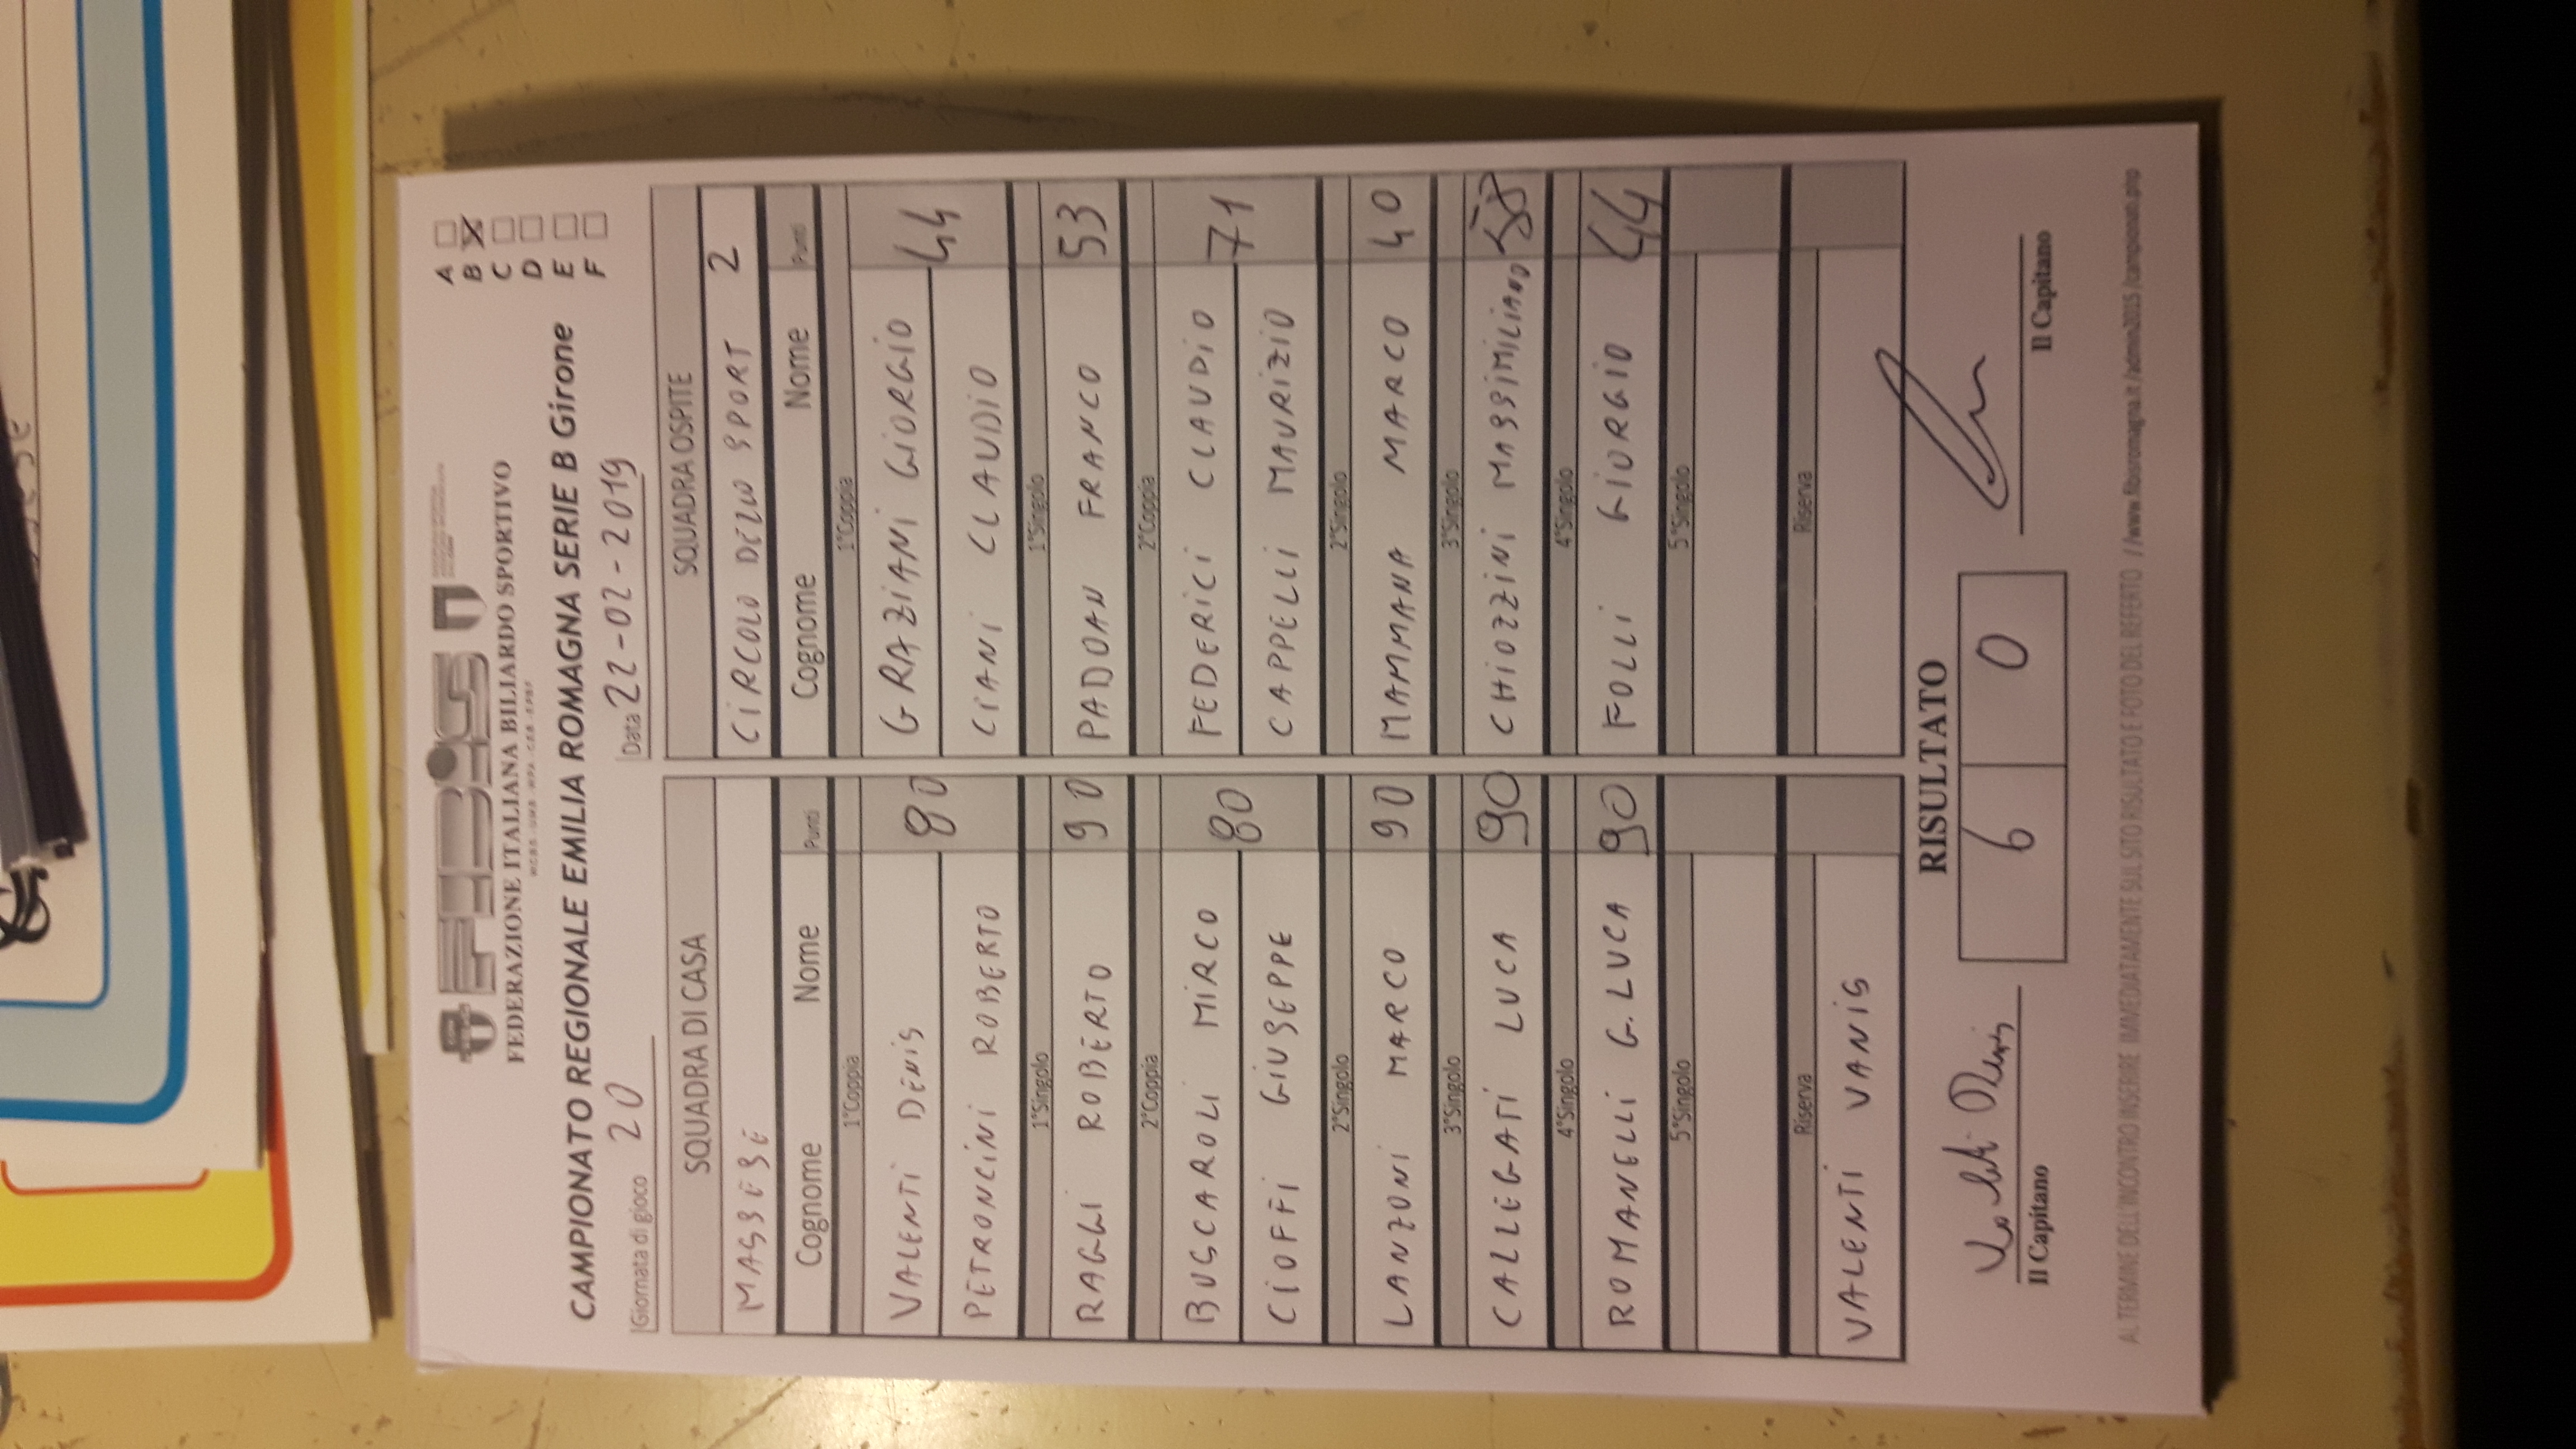 FEDERAZIONE ITALIANA BILIARDO SPORTIVO
CAMPIONATO REGIONALE EMILIA ROMAGNA SERIE B Girone
A
B X
C
D
E
F
Giornata di gioco 20 Data 22-02-2019
SQUADRA DI CASA SQUADRA OSPITE
MASSESE CIRCOLO DELLO SPORT 2
Cognome Nome Punti Cognome Nome Punti
1°Coppia 1°Coppia
VALENTI DENIS 80 GRAZIANI GIORGIO 44
PETRONCINI ROBERTO CIANI CLAUDIO
1°Singolo 1°Singolo
RAGGI ROBERTO 90 PADOAN FRANCO 53
2°Coppia 2°Coppia
BUSCAROLI MIRCO 80 FEDERICI CLAUDIO 71
CIOFFI GIUSEPPE CAPPELLI MAURIZIO
2°Singolo 2°Singolo
LANZONI MARCO 90 MAMMANA MARCO 40
3°Singolo 3°Singolo
CALLEGATI LUCA 90 CHIOZZINI MASSIMILIANO 58
4°Singolo 4°Singolo
ROMANELLI G. LUCA 90 FOLLI GIORGIO 44
5°Singolo 5°Singolo
Riserva Riserva
VALENTI VANIS
RISULTATO
6 0
Il Capitano Il Capitano
AL TERMINE DELL'INCONTRO INSERIRE IMMEDIATAMENTE SUL SITO RISULTATO E FOTO DEL REFERTO